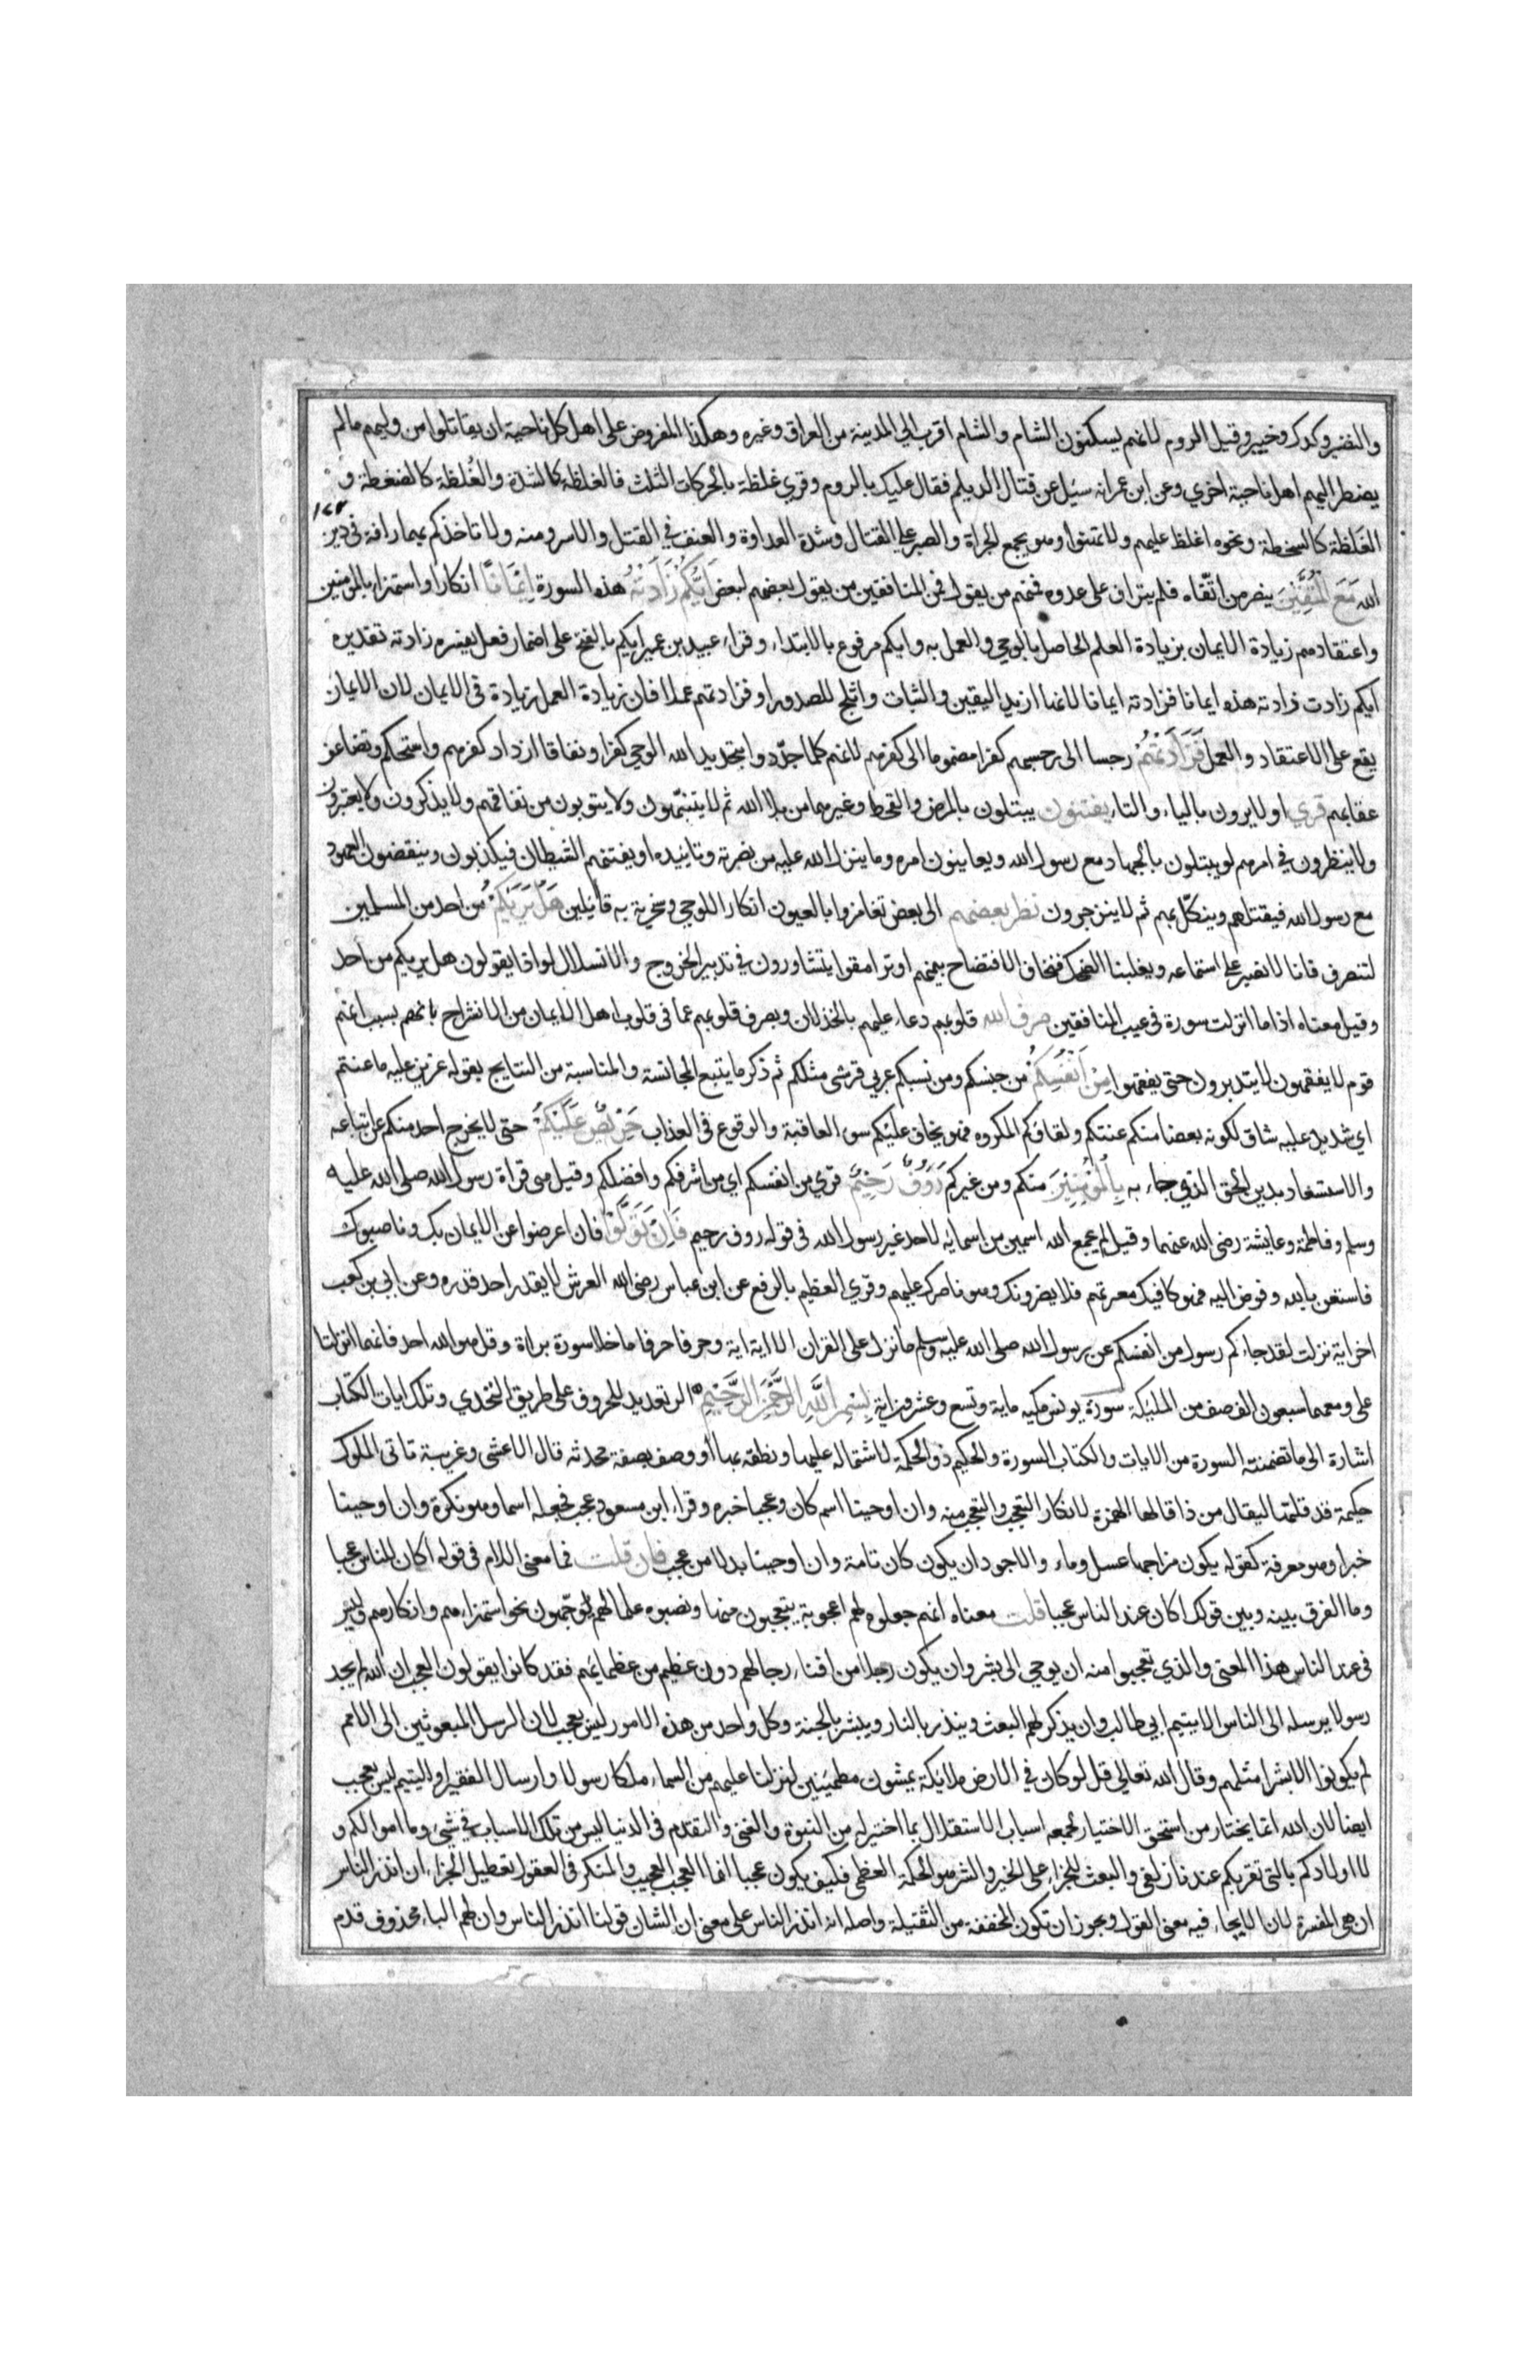 والنضير وكدك وخيبر وقيل الروم لانهم يسكنون الشام والشام اقرب الي المدينة من العراق وغيره وهكذا المفروض على اهل كل ناحية ان يقاتلوا من وليهم مالم
يضطر اليهم اهل ناحية اخري وعن ابن عمر انه سيل عن قتال الديلم فقال عليك بالروم وقري غلظة بالحركات الثلث فالغلظة كالشدة والغُلظة كالضغطة و
١٧٢
الغَلظة كالسخطة ونحوه اغلظ عليهم ولا تهنوا وهو يجمع الجراة والصبر علي القتال وشدة العداوة والعنف في القتل والاسر ومنه ولا تاخذكم بهما رافة في دين
الله مَعَ الْمُتَّقِينَ ينصر من اتّقاه فلم يتراف على عدوه فمنهم من يقول فمن المنافقين من يقول بعضهم لبعض اَيُّكُمْ زَادَتْهُ هذه السورة اِيْمَانًا انكارا واستهزاء بالمؤمنين
واعتقادهم زيادة الايمان بزيادة العلم الحاصل بالوحي والعمل به وايكم مرفوع بالابتداء وقراء عبيد بن عمير ايكم بالفتح على اضمار فعل يفسره زادته تقديره
ايكم زادت زادته هذه ايمانا فزادته ايمانا لانها ازيد اليقين والثبات واثلج للصدور او فزادتهم عملا فان زيادة العمل زيادة في الايمان لان الايمان
يقع على الاعتقاد والعمل فَزَادَتْهُمْ رجسا الى رجسهم كفرا مضموما الى كفرهم لانهم كلما جدّدوا بتجديد الله الوحي كفرا ونفاقا ازداد كفرهم واستحكم وتضاعف
عقابهم قري اولا يرون بالياء والتاء يفتنون يبتلون بالمرض والقحط وغيرهما من بلاا الله ثم لا يتنبّهون ولا يتوبون من نفاقهم ولا يذكرون ولا يعتبرون
ولا ينظرون في امرهم لو يبتلون بالجهاد مع رسول الله ويعاينون امره وما ينزل الله عليه من نصرته وتاييده او يفتنهم الشيطان فيكذبون وينقضون العهود
مع رسول الله فيقتلهم وينكّل بهم ثم لا ينزجرون نظر بعضهم الى بعض تغامزوا بالعيون انكارا للوحي وسخرية به قائلين هَلْ يَرَيٰكُمْ من احد من المسلمين
لتنصرف فانا لا نصبر على استماعه ويغلبنا الضحك فنخاف الافتضاح بينهم او ترامقوا يتشاورون في تدبير الخروج والانسلال لواذا يقولون هل يريكم من احد
وقيل معناه اذا ما انزلت سورة في عيب المنافقين صرف الله قلوبهم دعاء عليهم بالخذلان وبصرف قلوبهم عما في قلوب اهل الايمان من الانشراح بانهم بسبب انهم
قوم لا يفقهون لا يتدبرون حتى يفقهوا مِنْ اَنْفُسِكُمْ من جنسكم ومن نسبكم عربي قرشي مثلكم ثم ذكر ما يتبع المجانسة والمناسبة من النتايج بقوله عزيز عليه ما عنتم
اي شديد عليه شاق لكونه بعضا منكم عنتكم ولقاؤكم المكروه فهو يخاف عليكم سوء العاقبة والوقوع في العذاب حَرِيْصٌ عَلَيْكُمْ حتى لا يخرج احد منكم عن اتباعه
والاستسعاد بدين الحق الذي جاء به بِالْمُؤْمِنِيْنَ منكم ومن غيركم رَؤُوْفٌ رَحِيْمٌ قري من انفسكم اي من اشرفكم وافضلكم وقيل هي قراة رسول الله صلى الله عليه
وسلم وفاطمة وعايشة رضي الله عنهما وقيل لم يجمع الله اسمين من اسمائه لاحد غير رسول الله في قوله روف رحيم فَاِنْ تَوَلَّوْا فان اعرضوا عن الايمان بك وناصبوك
فاستعن بالله وفوض اليه فهو كافيك معرتهم فلا يضرونك وهو ناصرك عليهم وقري العظيم بالرفع عن ابن عباس رضي الله العرش لا يقدر احد قدره وعن ابي بن كعب
اخر اية نزلت لقد جاءكم رسول من انفسكم عن رسول الله صلى الله عليه وسلم ما نزل على القران الا اية اية وحرفا حرفا ما خلا سورة براة وقل هو الله احد فانهما انزلتا
علي ومعهما سبعون الف صف من المليكة سورة يونس مكيه ماية وتسع وعشرون اية بِسْمِ اللّٰهِ الرَّحْمٰنِ الرَّحِيْمِ الر تعديد للحروف على طريق التحدي وتلك ايات الكتاب
اشارة الى ما تضمنته السورة من الايات والكتاب السورة والحكيم ذو الحكمة لاشتماله عليها ونطقه بها أو وصف بصفة محدثه قال الاعشى وغريبة تاتي الملوك
حكيمة قد قلتها ليقال من ذا قالها الهمزة لانكار التعجب والتعجب منه وان اوحينا اسم كان وعجبا خبره وقراء ابن مسعود عجب فجعله اسما وهو نكرة وان اوحينا
خبرا وهو معرفة كقوله يكون مزاجها عسل وماء والاجود ان يكون كان تامة وان اوحينا بدلا من عجب فان قلت فما معنى اللام في قوله اكان للناس عجبا
وما الفرق بينه وبين قولك اكان عند الناس عجبا قلت معناه انهم جعلوه لهم اعجوبة يتعجبون منها ونصبوه علما لهم يُوجّهون نحوه استهزاءهم وانكارهم وليس
في عند الناس هذا المعنى والذي تعجبوا منه ان يوحي الى بشر وان يكون رجلا من افناء رجالهم دون عظيم من عظمايهم فقد كانوا يقولون العجب ان الله لم يجد
رسولا يرسله الى الناس الا يتيم ابي طالب وان يذكر لهم البعث وينذر بالنار ويبشر بالجنة وكل واحد من هذه الامور ليس بعجب لان الرسل المبعوثين الى الامم
لم يكونوا الا بشرا مثلهم وقال الله تعالى قل لو كان في الارض ملايكة يمشون مطمئنين لنزلنا عليهم من السماء ملكا رسولا وارسال الفقير او اليتيم ليس بعجب
ايضا لان الله انما يختار من استحق الاختيار لجمعه اسباب الاستقلال بما اختير له من النبوة والغنى والتقدم في الدنيا ليس من تلك الاسباب في شيء وما اموالكم و
لا اولادكم بالتي تقربكم عندنا زلفي والبعث للجزاء على الخير والشر هو الحكمة العظمى فكيف يكون عجبا انما العجب العجيب والمنكر في العقول تعطيل الجزاء ان انذر الناس
ان هي المفسرة لان الايحاء فيه معنى القول ويجوز ان تكون المخففة من الثقيلة واصله انه انذر الناس على معنى ان الشان قولنا انذر الناس وان لهم الباء محذوف قدم